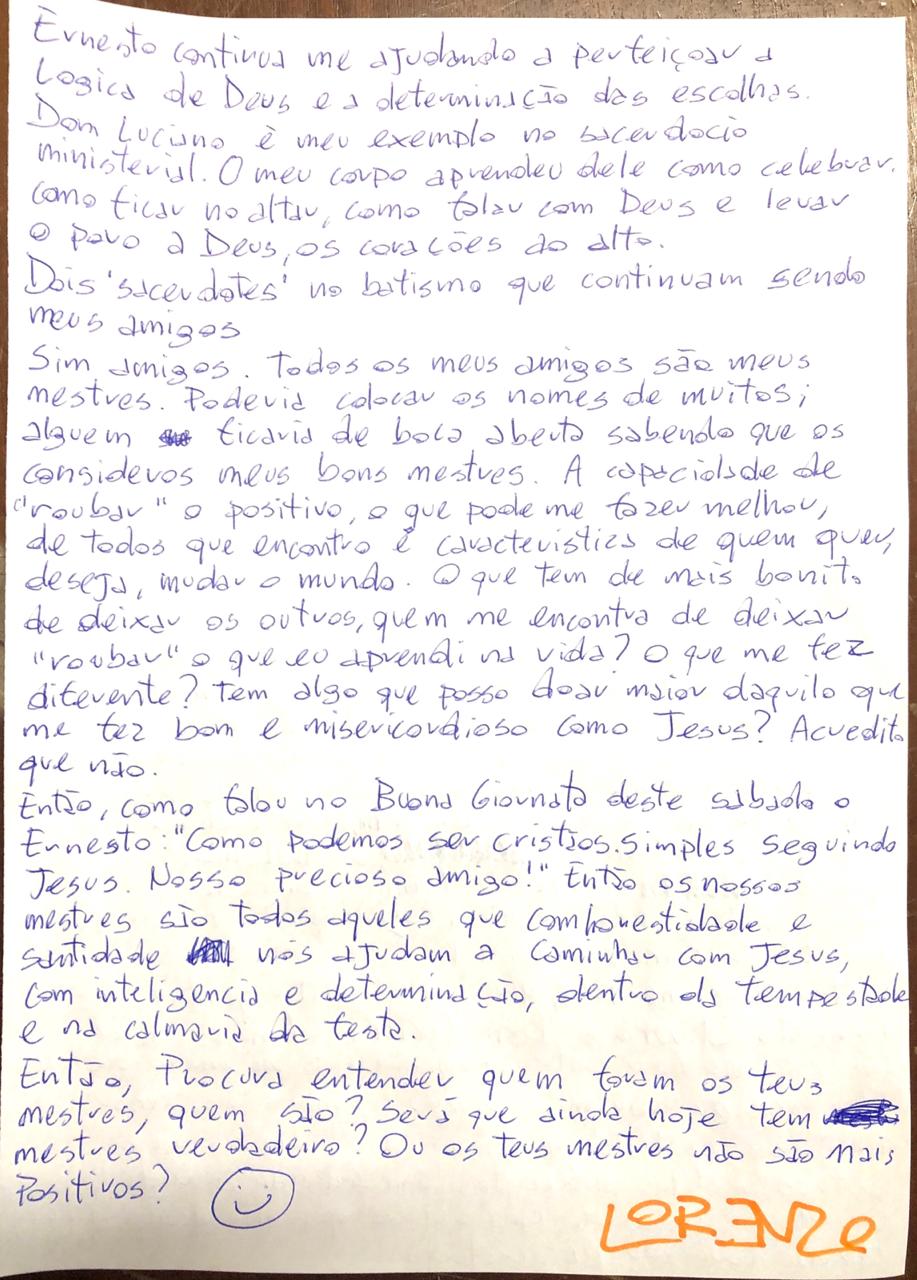 Ernesto continua me ajudando a perfeiçoar a
Logica de Deus e a determinação das escolhas.
Dom Luciano è meu exemplo no sacerdocio
ministerial. O meu corpo aprendeu dele como celebrar,
como ficar no altar, como falar com Deus e levar
o povo a Deus, os corações ao alto.
Dois 'sacerdotes' no batismo que continuam sendo
meus amigos
Sim amigos. Todos os meus amigos são meus
mestres. Poderia colocar os nomes de muitos;
alguem ficaria de boca aberta sabendo que os
consideros meus bons mestres. A capacidade de
"roubar" o positivo, o que pode me fazer melhor,
de todos que encontro é caracteristica de quem quer,
deseja, mudar o mundo. O que tem de mais bonito
de deixar os outros, quem me encontra de deixar
"roubar" o que eu aprendi na vida? O que me fez
diferente? Tem algo que posso doar maior daquilo que
me fez bom e misericordioso como Jesus? Acredito
que não.
Então, como falou no Buona Giornata deste sabado o
Ernesto: "Como podemos ser cristãos. Simples seguindo
Jesus. Nosso precioso amigo!" Então os nossos
mestres são todos aqueles que com honestidade e
santidade nos ajudam a caminhar com Jesus,
com inteligencia e determinação, dentro da tempestade
e na calmaria da festa.
Então, Procura entender quem foram os teus
mestres, quem são? Será que ainda hoje tem
mestres verdadeiro? Ou os teus mestres não são mais
Positivos?
LORENZO